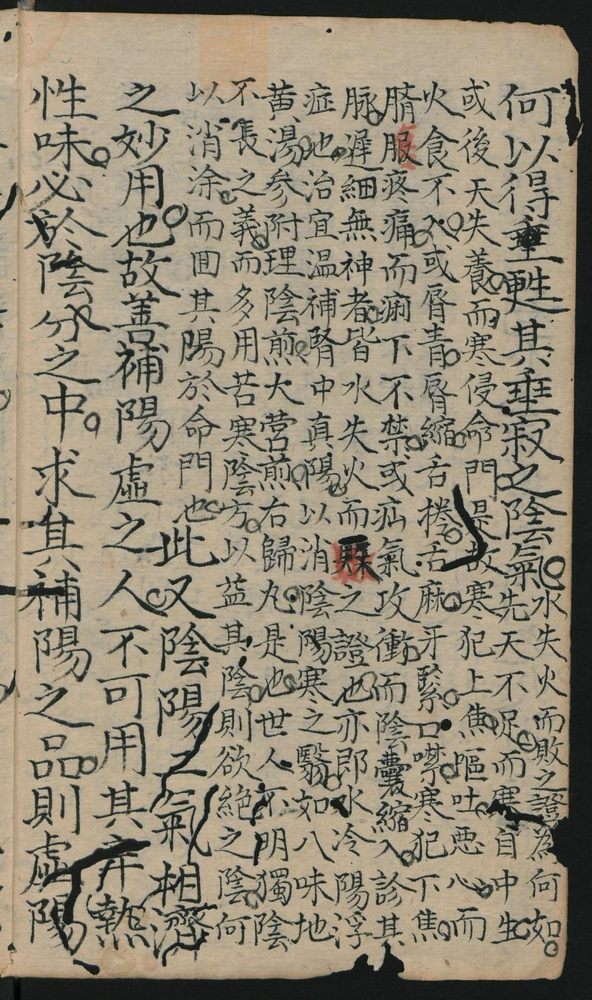 何以得重甦其垂寂之陰氣
水失火而敗之證為何如
先天不足而寒自中生
或後天失養而寒侵命門是故寒犯上焦嘔吐悪心而
火食不入或唇青唇縮舌捲舌麻牙緊口噤寒犯下焦
疼痛而痢下不禁或疝氣攻衝而陰囊縮入診其
脉遲細無神者皆水失火而之證也亦即水冷陽浮
症也治宜温補腎中真陽以消陰陽寒之翳如八味地
黄湯参附理陰煎大营煎右歸丸是也世人不明獨陰
不長之義而多用苦寒陰方以益其陰則欲絶之陰何
以消涂而囬其陽於命門也此又陰陽二氣相濟
之妙用也故善補陽虛之人不可用其辛熱
性味必於陰分之中求其補陽之品則虛陽